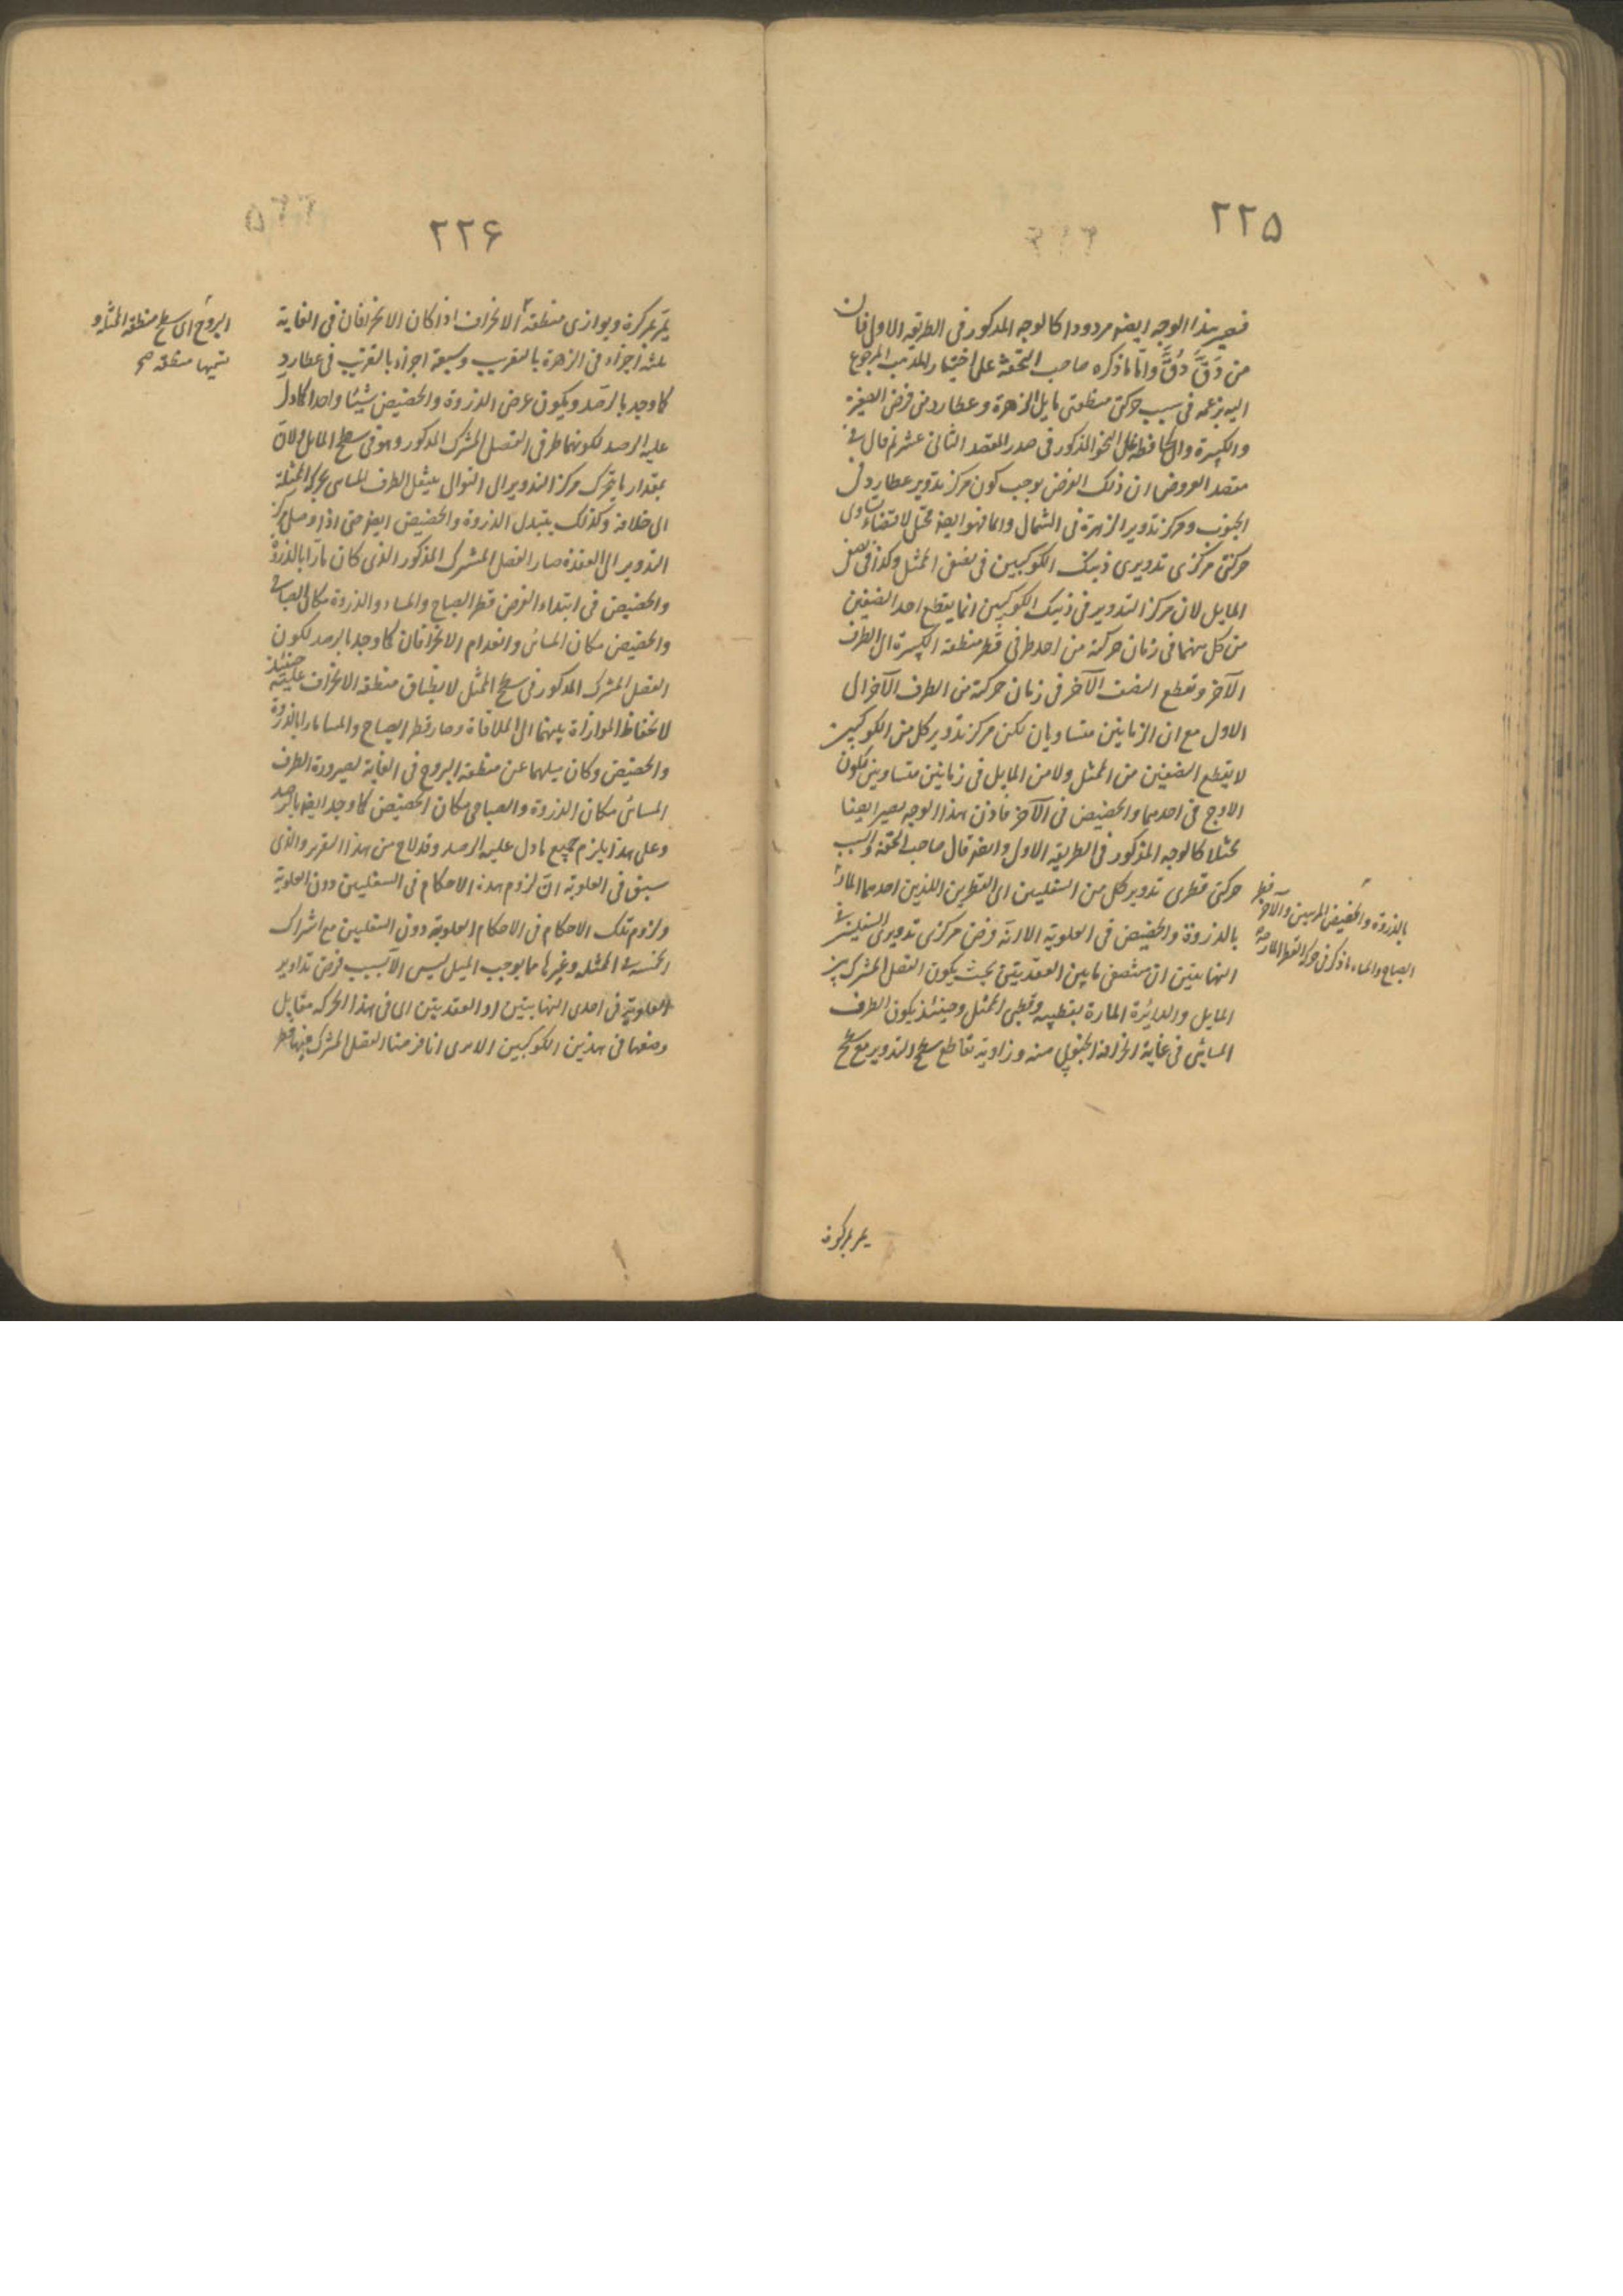 ٢٢۵
فيصير هذا الوجه ايضا مردودا كالوجه المذكور في الطريقة الاولى فان
من دَقَّ دُقَّ واما ما ذكره صاحب التحفة على اختيار المذهب المرجوع
اليه بزعمه في سبب حركتي منطقتي مايل الزهرة وعطارد من فرض الصغيرة
والكبيرة والحافظة على النحو المذكور في صدر المقصد الثاني عشر ثم قال في
مقصد العروض ان ذلك الفرض يوجب كون مركز تدوير عطارد في
الجنوب ومركز تدوير الزهرة في الشمال دائما فهو ايضا مختل لاقتضائه تساوي
حركتي مركزي تدويري ذينك الكوكبين في نصفي الممثل وكذا في نصفي
المايل لان مركز التدوير في ذينك الكوكبين انما يقطع احد النصفين
من كل منهما في زمان حركته من احد طرفي قطر منطقة الكبيرة الى الطرف
الآخر ويقطع النصف الآخر في زمان حركته من الطرف الآخر الى
الاول مع ان الزمانين متساويان لكن مركز تدوير كل من الكوكبين
لا يقطع النصفين من الممثل ولا من المايل في زمانين متساويين لكون
الاوج في احدهما والحضيض في الآخر فاذن هذا الوجه يصير ايضا
مختلا كالوجه المذكور في الطريقة الاولى وايضا قال صاحب التحفة والسبب
حركتي قطري تدوير كل من السفليين اى القطرين اللذين احدهما المار
بالذروة والحضيض في العلوية الا انه فرض مركزي تدويري السفليين في
النهايتين اى منتصفي ما بين العقدتين بحيث يكون الفصل المشترك بين
المايل والدائرة المارة بقطبيه وقطبي الممثل وحينئذ يكون الطرف
المسائي في غاية انحرافه الجنوبي منه وزاوية تقاطع سطح التدوير مع سطح
بالذروة والحضيض المرئيين والآخر قطر
الصباح والمساء ما ذكر في حركة القطر المار
يمر بمركزه
٢٢۶
يمر بمركزه ويوازي منطقة الانحراف اذا كان الانحرافان في الغاية
ثلثة اجزاء في الزهرة بالتقريب وسبعة اجزاء بالتقريب في عطارد
كما وجد بالرصد ويكون عرض الذروة والحضيض شيئا واحدا كما دل
عليه الرصد لكونهما طرفي الفصل المشترك المذكور وهو في سطح المايل ولان
بمقدار ما يتحرك مركز التدوير الى التوالي ينتقل الطرف المسائي بحركة الممثلة
الى خلافه وكذلك يتبدل الذروة والحضيض ايضا حتى اذا وصل مركز
التدوير الى العقدة صار الفصل المشترك المذكور الذي كان مارا بالذروة
والحضيض في ابتداء الفرض قطر الصباح والمساء والذروة مكان الصباحي
والحضيض مكان المسائي وانعدام الانحرافان كما وجد بالرصد لكون
الفصل المشترك المذكور في سطح الممثل لانطباق منطقة الانحراف حينئذ عليه
لانحفاظ الموازاة بينهما الى الملاقاة وصار قطر الصباح والمسا مارا بالذروة
والحضيض وكان ميلهما عن منطقة البروج في الغاية لصيرورة الطرف
المسائي مكان الذروة والصباحي مكان الحضيض كما وجد ايضا بالرصد
وعلى هذا يلزم جميع ما دل عليه الرصد وقد لاح من هذا التقرير والذي
سبق في العلوية ان لزوم هذه الاحكام في السفليين دون العلوية
ولزوم تلك الاحكام في الاحكام العلوية دون السفليين مع اشتراك
الخمسة في الممثلة وغيرها مما يوجب الميل ليس الا بسبب فرض تداوير
العلوية في احدى النهايتين او العقدتين اى في هذا الحركة مقابل
وضعها في هذين الكوكبين الا ترى انا فرضنا الفصل المشترك فيهما قطر
البروج اى سطح منطقة الممثلة و
تتميها منطقة صح